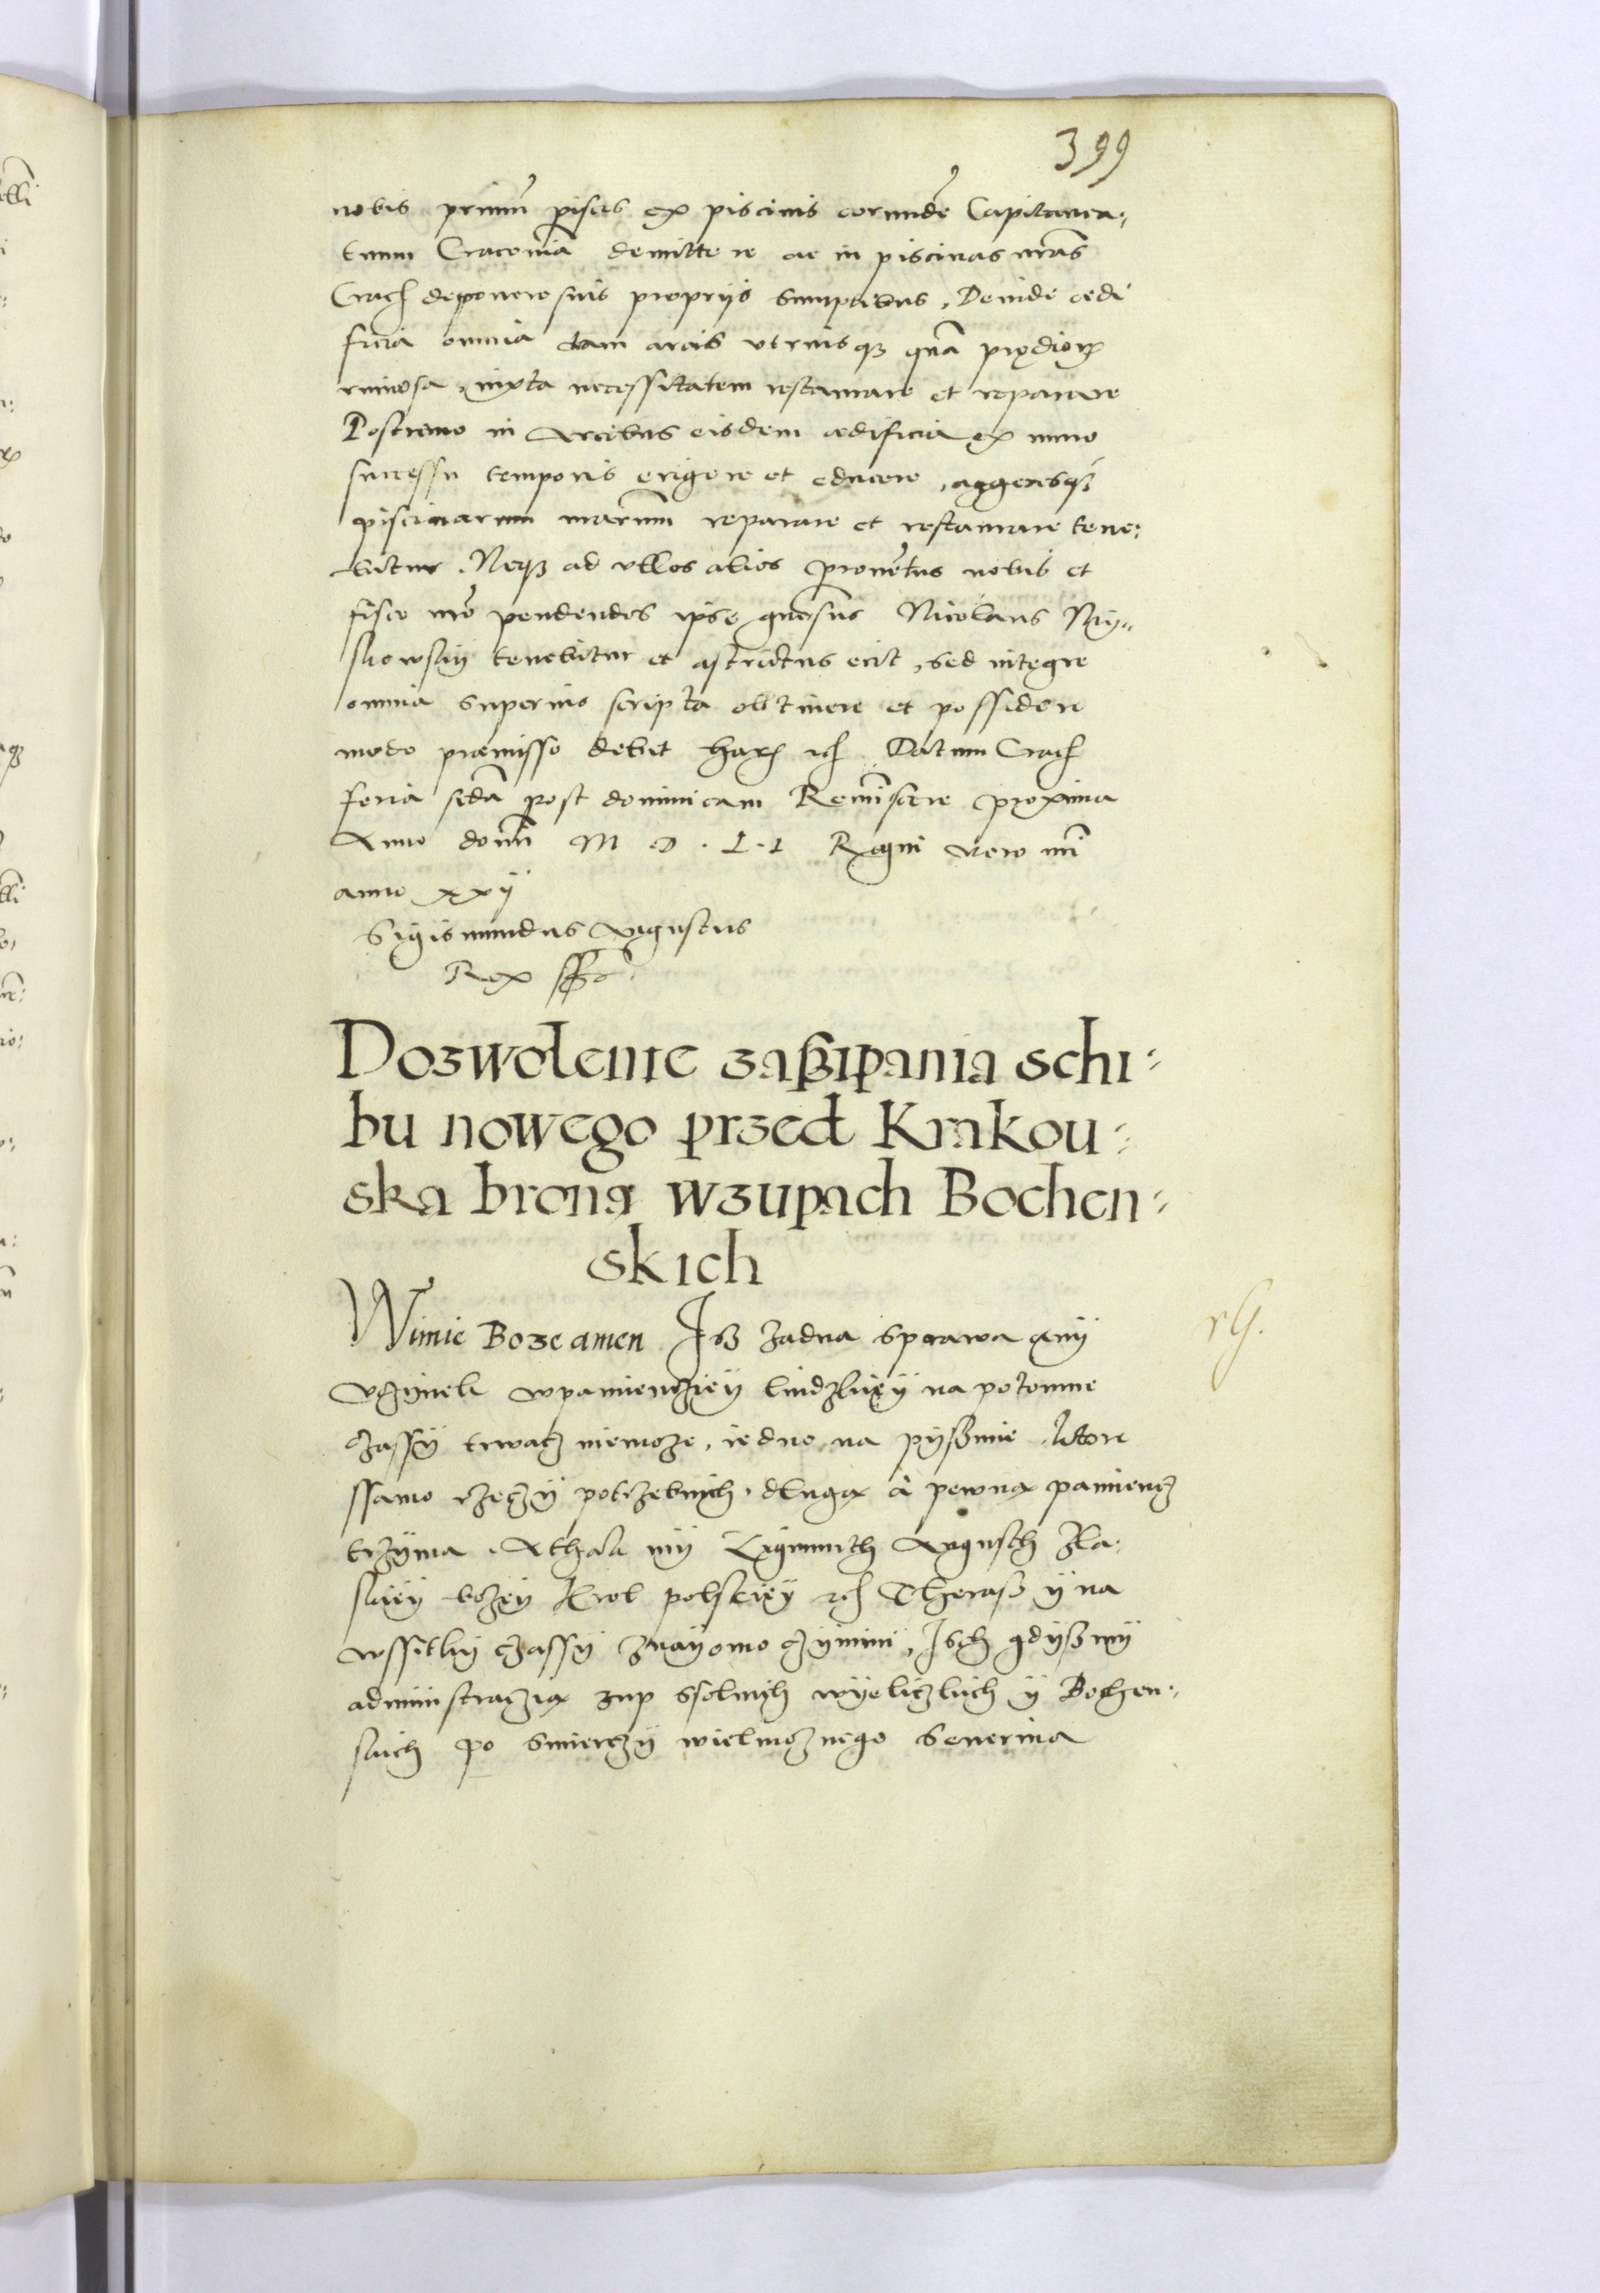 399
nobis primũ pisces ex piscinis eorundẽ Capitanea:
tuum Cracouiã demittere ac in piscinas nr̃as
Crach deponere suis proprijs sumptibus, Deinde aedi
ficia omnia tam arcis vtriusq3 quã prędiorꝝ
ruinosa, iuxta necessitatem restaurare et reparare
Postremo in arcibus eisdem aedificia ex nouo
successu temporis erigere et educere, aggeresq3
piscinarum nrarum reparare et restaurare tene:
bitur. Neq3 ad vllos alios prouẽtus nobis et
fisco nr̃o pendendos ipse gnosus Nicolaus My„
skowsky tenebitur et astrictus erit, sed integre
omnia superius scripta obtinere et possidere
modo praemisso debet harꝝ etc̃ Datum Crach
feria secda post dominicam Reminiscere proxima
Anno domi M D. L. I Regni vero nri
anno xxij
Sigismundus Augustus
Rex sst
Dozwolenie zaßipania schi:
bu nowego przed Krakou:
ska brona wzupach Bochen:
skich
Wimie Boze amen Isz zadna sprawa any
vczynek wpamienczięy liudzkięy na potomne
czassÿ trwacz niemoze, iedno na pyßmie ktore
ssamo rzeczÿ potrzebnich, dluga à pewna pamiencz
trzyma, Athak mÿ Zigmunth Augusth Zla:
skięy bożęy Krol polskięy etc̃ Theraß ÿ na
wssitky czassÿ znaÿomo czÿnimi, Isch gdyßmy
administraczia zup ssolnich wÿeliczkich ÿ Bochen:
skich po smierczÿ wielmoznego Seuerina